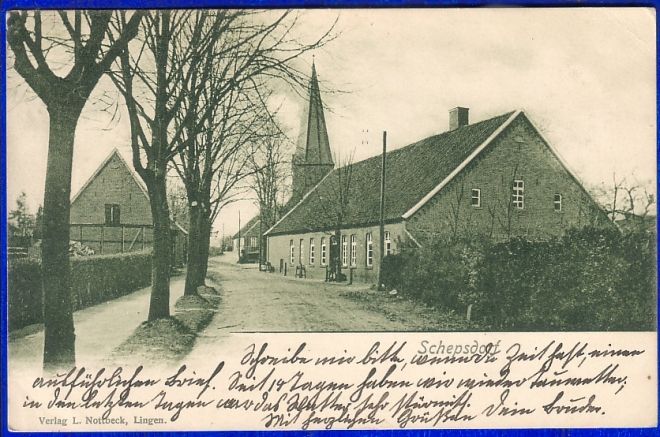 Schepsdorf
Schreibe mir bitte, wenn du Zeit hast, einen
ausführlichen Brief. Seit 14 Tagen haben wir wieder Tauwetter,
in den letzten Tagen war das Wetter sehr stürmisch.
Mit herzlichen Grüßen Dein Bruder.
Verlag L. Nottbeck, Lingen.